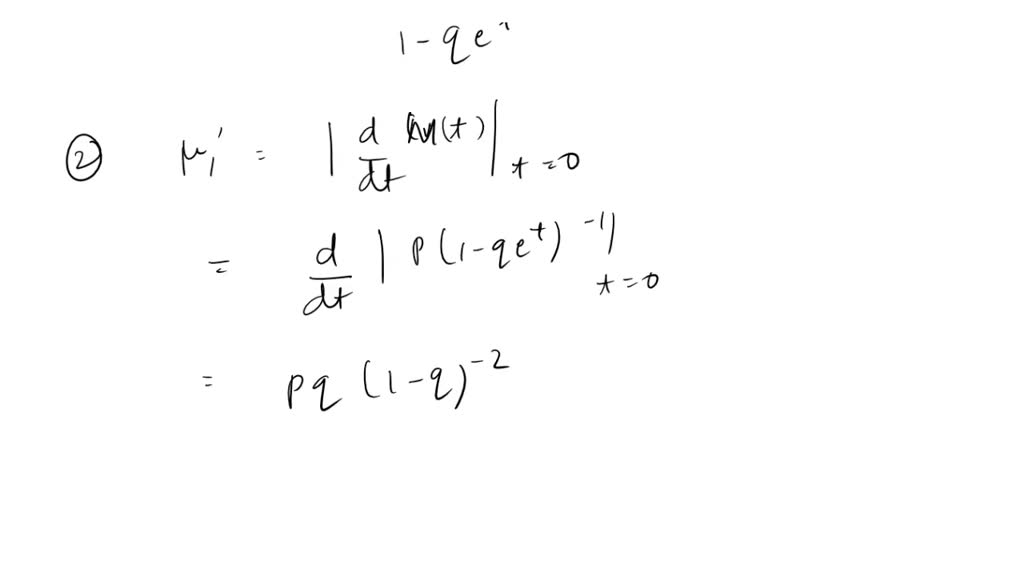 1 - qe
② μ₁' = | d/dt M(t) | t=0
= d/dt | p(1-qe^t)^-1 | t=0
= pq (1-q)^-2